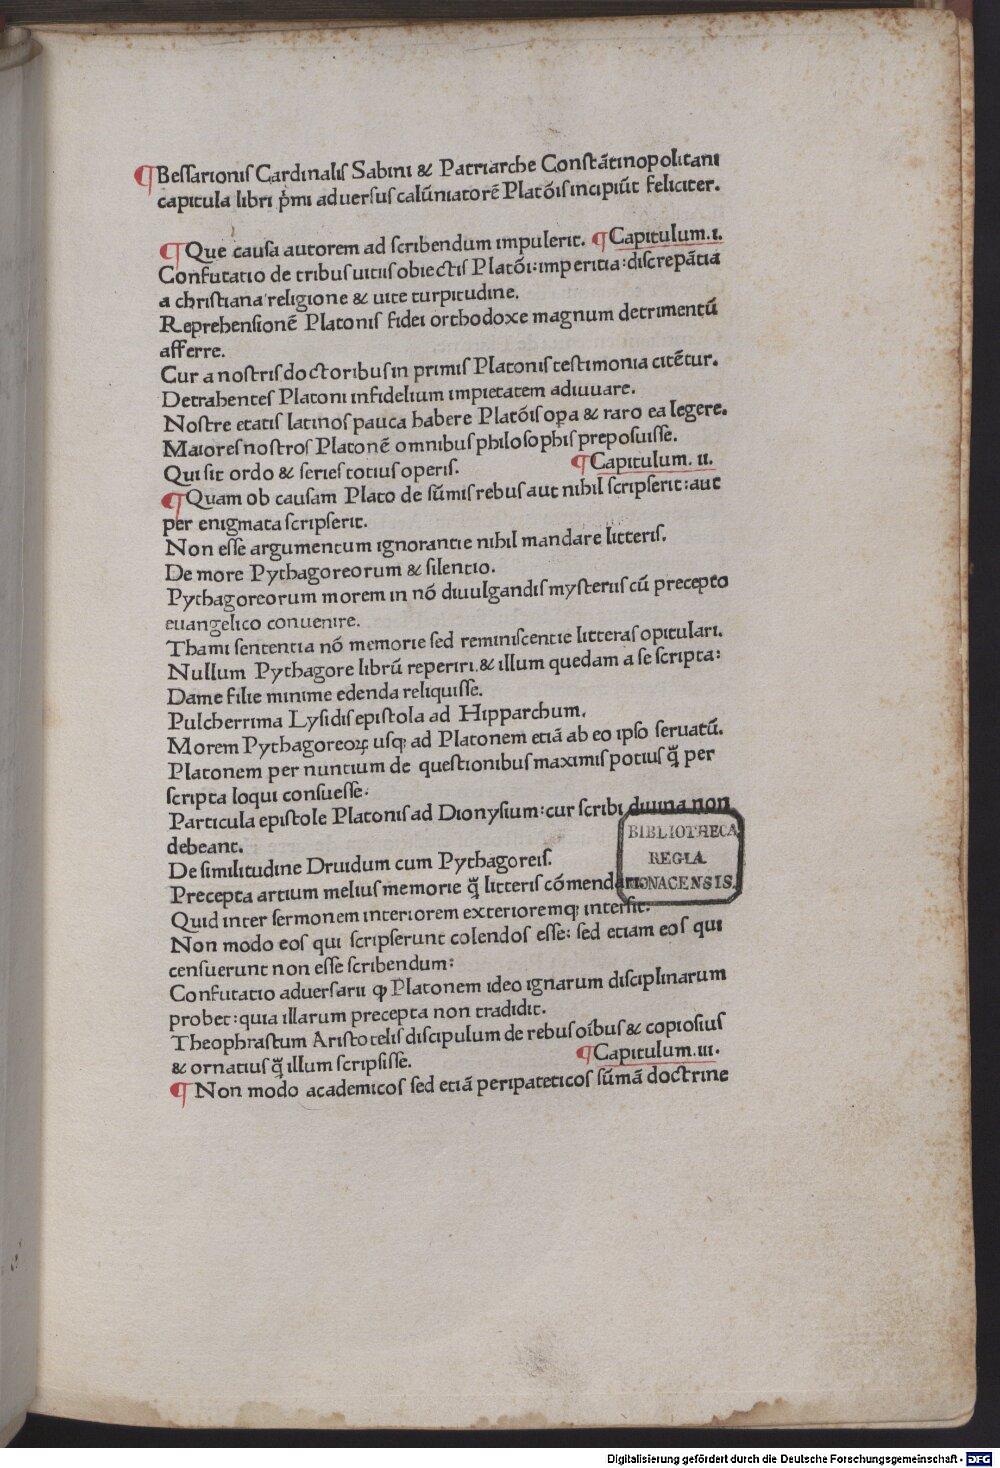 ¶Bessarionis Cardinalis Sabini & Patriarche Constātinopolitani
capitula libri p̄mi adversus calūniatorē Platōis incipiūt feliciter.
¶Que causa autorem ad scribendum impulerit. ¶Capitulum.i.
Confutatio de tribus uitiis obiectis Platōi:imperitia:discrepātia
a christiana religione & uite turpitudine.
Reprehensionē Platonis fidei orthodoxe magnum detrimentū
afferre.
Cur a nostris doctoribus in primis Platonis testimonia citētur.
Detrahentes Platoni infidelium impietatem adiuuare.
Nostre etatis latinos pauca habere Platōis oꝑa & raro ea legere.
Maiores nostros Platonē omnibus philosophis preposuisse.
Qui sit ordo & series totius operis. ¶Capitulum.ii.
¶Quam ob causam Plato de sūmis rebus aut nihil scripserit:aut
per enigmata scripserit.
Non esse argumentum ignorantie nihil mandare litteris.
De more Pythagoreorum & silentio.
Pythagoreorum morem in nō diuulgandis mysteriis cū precepto
euangelico conuenire.
Thami sententia nō memorie sed reminiscentie litteras opitulari.
Nullum Pythagore librū reperiri.& illum quedam a se scripta:
Dame filie minime edenda reliquisse.
Pulcherrima Lysidis epistola ad Hipparchum.
Morem Pythagoreoꝝ usqꝫ ad Platonem etiā ab eo ipso seruatū.
Platonem per nuntium de questionibus maximis potius q̄̃ per
scripta loqui consuesse:
Particula epistole Platonis ad Dionysium:cur scribi diuina non
debeant.
De similitudine Druidum cum Pythagoreis.
Precepta artium melius memorie q̄̃ litteris cōmendari.
Quid inter sermonem interiorem exterioremqꝫ intersit.
Non modo eos qui scripserunt colendos esse: sed etiam eos qui
censuerunt non esse scribendum:
Confutatio aduersarii ꝙ Platonem ideo ignarum disciplinarum
probet:quia illarum precepta non tradidit.
Theophrastum Aristotelis discipulum de rebus oībus & copiosius
& ornatius q̄̃ illum scripsisse. ¶Capitulum.iii.
¶Non modo academicos sed etiā peripateticos sūmā doctrine
BIBLIOTHECA
REGIA
MONACENSIS.
Digitalisierung gefördert durch die Deutsche Forschungsgemeinschaft - DFG